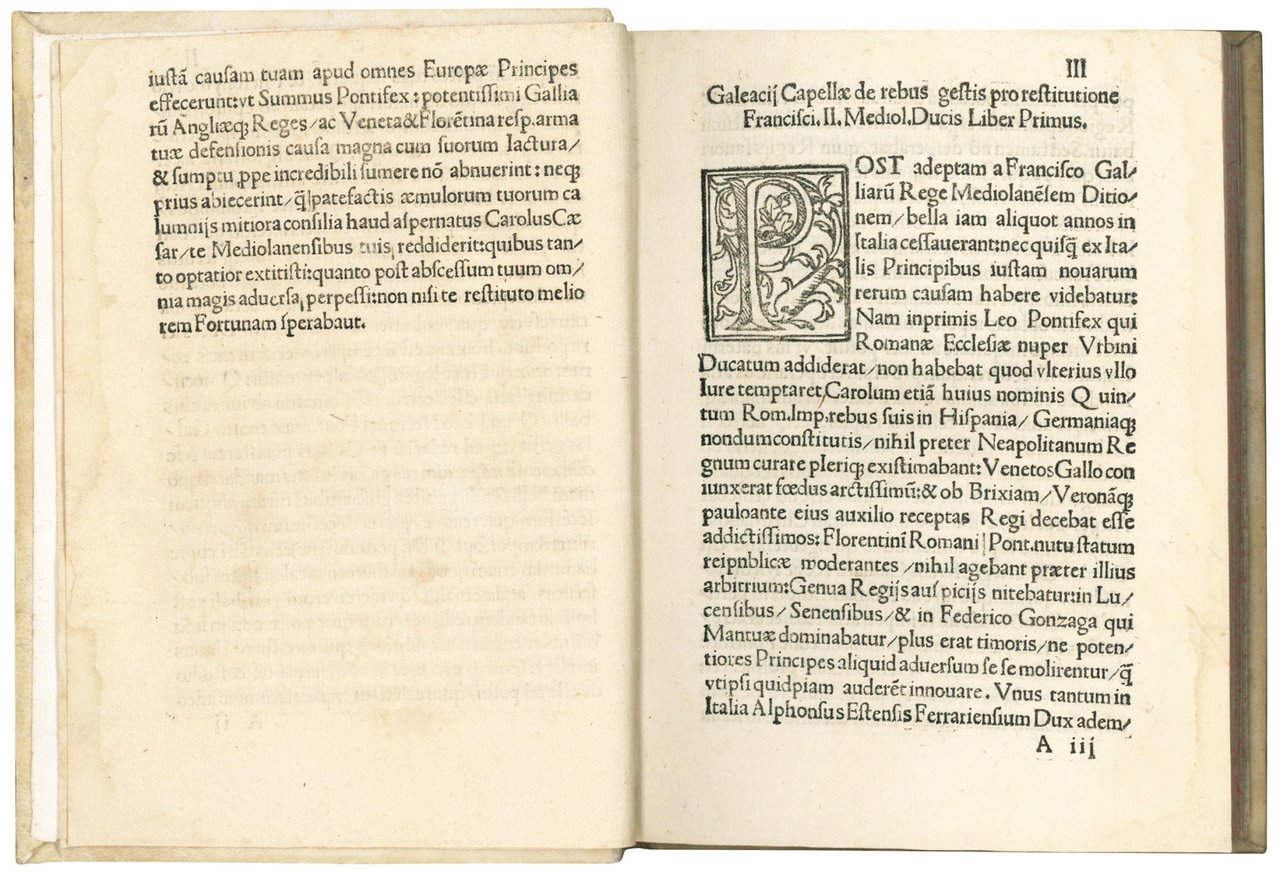 iustã causam tuam apud omnes Europæ Principes
effecerunt:vt Summus Pontifex : potentissimi Gallia
rũ Angliæq; Reges/ac Veneta&Florẽtina resp.arma
tuæ defensionis causa magna cum suorum Iactura/
& sumptu ꝓpe incredibili sumere nõ abnuerint : neq;
prius abiecerint/q̃ patefactis æmulorum tuorum ca
lumnijs mitiora consilia haud aspernatus Carolus Cæ
sar/te Mediolanensibus tuis reddiderit:quibus tan/
to optatior extitisti:quanto post abscessum tuum om/
nia magis aduersa perpessi:non nisi te restituto melio
rem Fortunam sperabaut.
III
Galeacij Capellæ de rebus gestis pro restitutione
Francisci.II.Mediol.Ducis Liber Primus.
POST adeptam a Francisco Gal/
liarũ Rege Mediolanẽsem Ditio/
nem/bella iam aliquot annos in
Italia cessauerant:nec quisq̃ ex Ita/
lis Principibus iustam nouarum
rerum causam habere videbatur:
Nam inprimis Leo Pontifex qui
Romanæ Ecclesiæ nuper Vrbini
Ducatum addiderat/non habebat quod vlterius vllo
Iure temptaret/Carolum etiã huius nominis Quin/
tum Rom.Imp.rebus suis in Hispania/Germaniaq;
nondumconstitutis/nihil preter Neapolitanum Re
gnum curare pleriq; existimabant:Venetos Gallo con
iunxerat fœdus arctissimũ:& ob Brixiam/Veronãq;
pauloante eius auxilio receptas Regi decebat esse
addictissimos:Florentini Romani Pont.nutu statum
reipnblicæ moderantes/nihil agebant præter illius
arbitrium:Genua Regijs auspicijs nitebatur:in Lu/
censibus/Senensibus/& in Federico Gonzaga qui
Mantuæ dominabatur/plus erat timoris/ne poten/
tiores Principes aliquid aduersum se se molirentur/q̃
vtipsi quidpiam auderẽt innouare. Vnus tantum in
Italia Alphonsus Estensis Ferrariensium Dux adem/
A iij